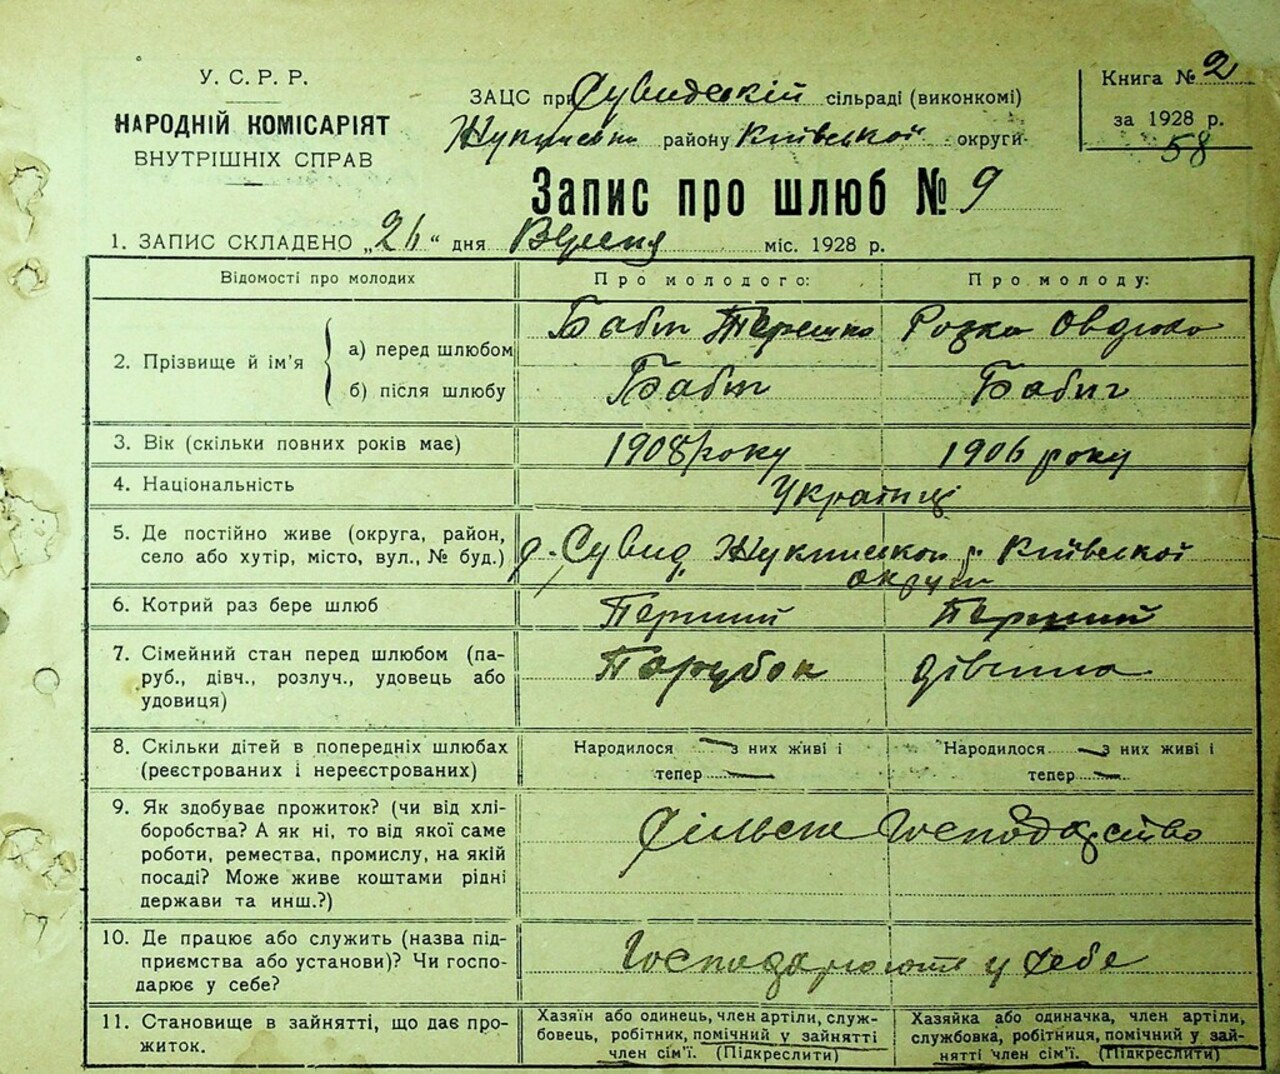 У. С. Р. Р.
НАРОДНІЙ КОМІСАРІЯТ
ВНУТРІШНІХ СПРАВ
ЗАЦС при Сувидській сільраді (виконкомі)
району Київської округи
Книга № 2
за 1928 р.
58
Запис про шлюб № 9
1. ЗАПИС СКЛАДЕНО „26“ дня Вересня міс. 1928 р.
Відомості про молодих
Про молодого:
Про молоду:
2. Прізвище й ім'я
а) перед шлюбом
Бабич Терешко
Овдюха
б) після шлюбу
Бабич
Бабич
3. Вік (скільки повних років має)
1908 року
1906 року
4. Національність
Українці
5. Де постійно живе (округа, район,
село або хутір, місто, вул., № буд.)
Сувид, р. Київської
округи
6. Котрий раз бере шлюб
Перший
Перший
7. Сімейний стан перед шлюбом (па-
руб., дівч., розлуч., удовець або
удовиця)
Парубок
дівчина
8. Скільки дітей в попередніх шлюбах
(реєстрованих і нереєстрованих)
Народилося — з них живі і
тепер —
Народилося — з них живі і
тепер —
9. Як здобуває прожиток? (чи від хлі-
боробства? А як ні, то від якої саме
роботи, ремества, промислу, на якій
посаді? Може живе коштами рідні
держави та инш.?)
Сільське Господарство
10. Де працює або служить (назва під-
приємства або установи)? Чи госпо-
дарює у себе?
Господарюють у себе
11. Становище в зайнятті, що дає про-
житок.
Хазяїн або одинець, член артіли, служ-
бовець, робітник, помічний у зайнятті
член сім'ї. (Підкреслити)
Хазяйка або одиначка, член артіли,
службовка, робітниця, помічний у зай-
нятті член сім'ї. (Підкреслити)